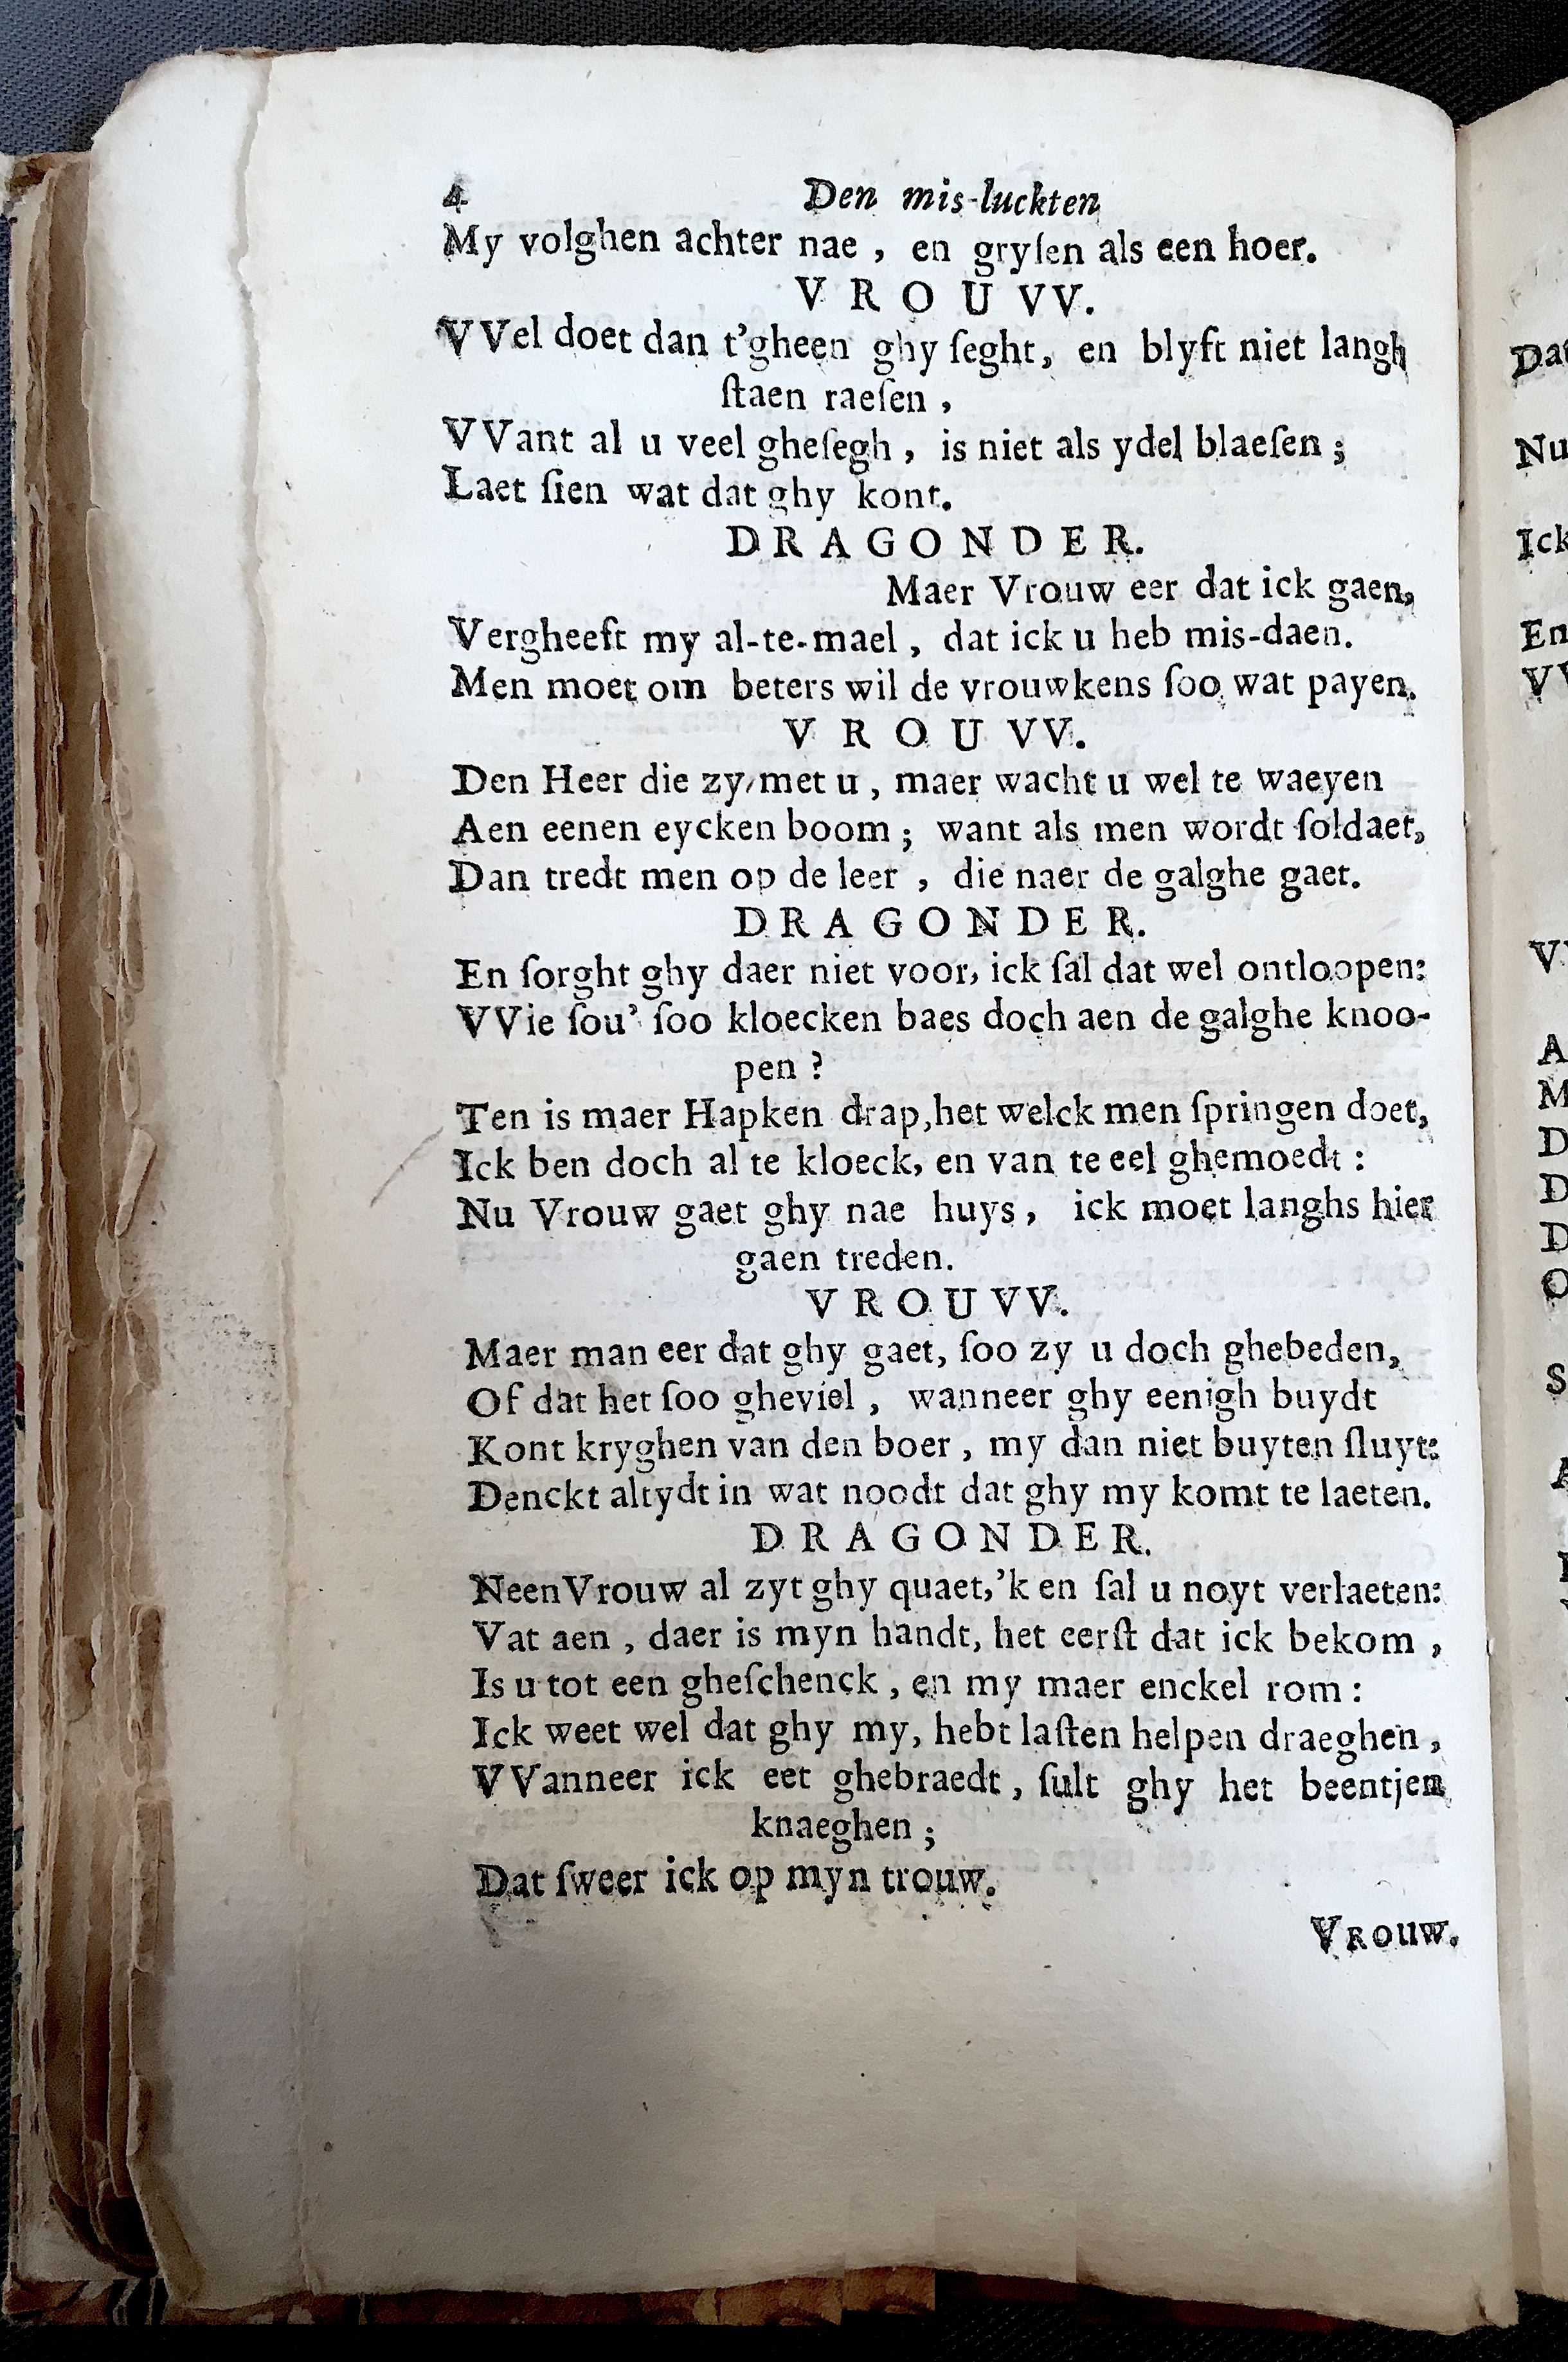 4 Den mis-luckten
My volghen achter nae , en gryſen als een hoer.
V R O U VV.
VVel doet dan t'gheen ghy ſeght, en blyft niet langh
ſtaen raeſen ,
VVant al u veel gheſegh , is niet als ydel blaeſen ;
Laet ſien wat dat ghy kont.
D R A G O N D E R.
Maer Vrouw eer dat ick gaen,
Vergheeft my al-te-mael , dat ick u heb mis-daen.
Men moet om beters wil de vrouwkens ſoo wat payen.
V R O U VV.
Den Heer die zy met u , maer wacht u wel te waeyen
Aen eenen eycken boom ; want als men wordt ſoldaet,
Dan tredt men op de leer , die naer de galghe gaet.
D R A G O N D E R.
En ſorght ghy daer niet voor, ick ſal dat wel ontloopen:
VVie ſou' ſoo kloecken baes doch aen de galghe knoo-
pen ?
Ten is maer Hapken drap,het welck men ſpringen doet,
Ick ben doch al te kloeck, en van te eel ghemoedt :
Nu Vrouw gaet ghy nae huys , ick moet langhs hier
gaen treden.
V R O U VV.
Maer man eer dat ghy gaet, ſoo zy u doch ghebeden,
Of dat het ſoo gheviel , wanneer ghy eenigh buydt
Kont kryghen van den boer , my dan niet buyten ſluyt:
Denckt altydt in wat noodt dat ghy my komt te laeten.
D R A G O N D E R.
Neen Vrouw al zyt ghy quaet,'k en ſal u noyt verlaeten:
Vat aen , daer is myn handt, het eerſt dat ick bekom ,
Is u tot een gheſchenck , en my maer enckel rom :
Ick weet wel dat ghy my, hebt laſten helpen draeghen ,
VVanneer ick eet ghebraedt , ſult ghy het beentjen
knaeghen ;
Dat ſweer ick op myn trouw.
VROUW.
Dat
Nu
Ick
En
VV
V
A
M
D
D
D
O
S
A